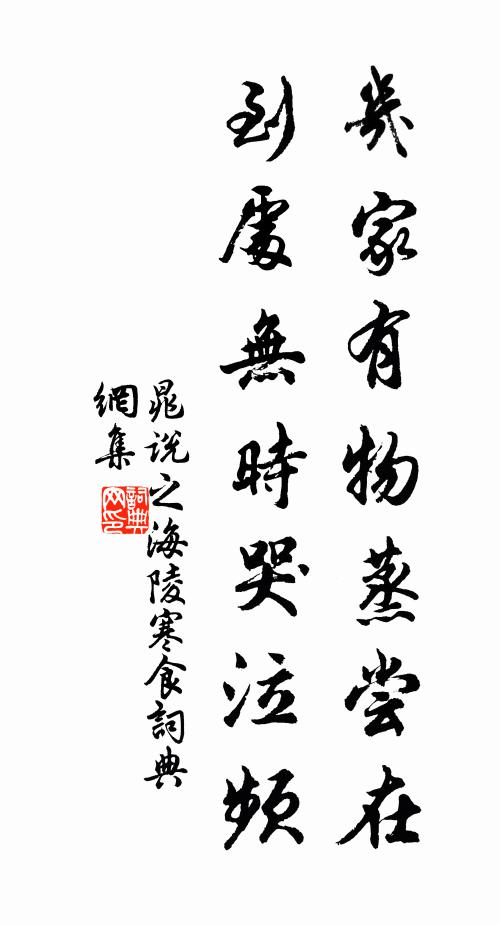 幾家有物蒸尝在
到處無時哭泣頻
晁说之海陵寒食詞典
網集
詞典
网印